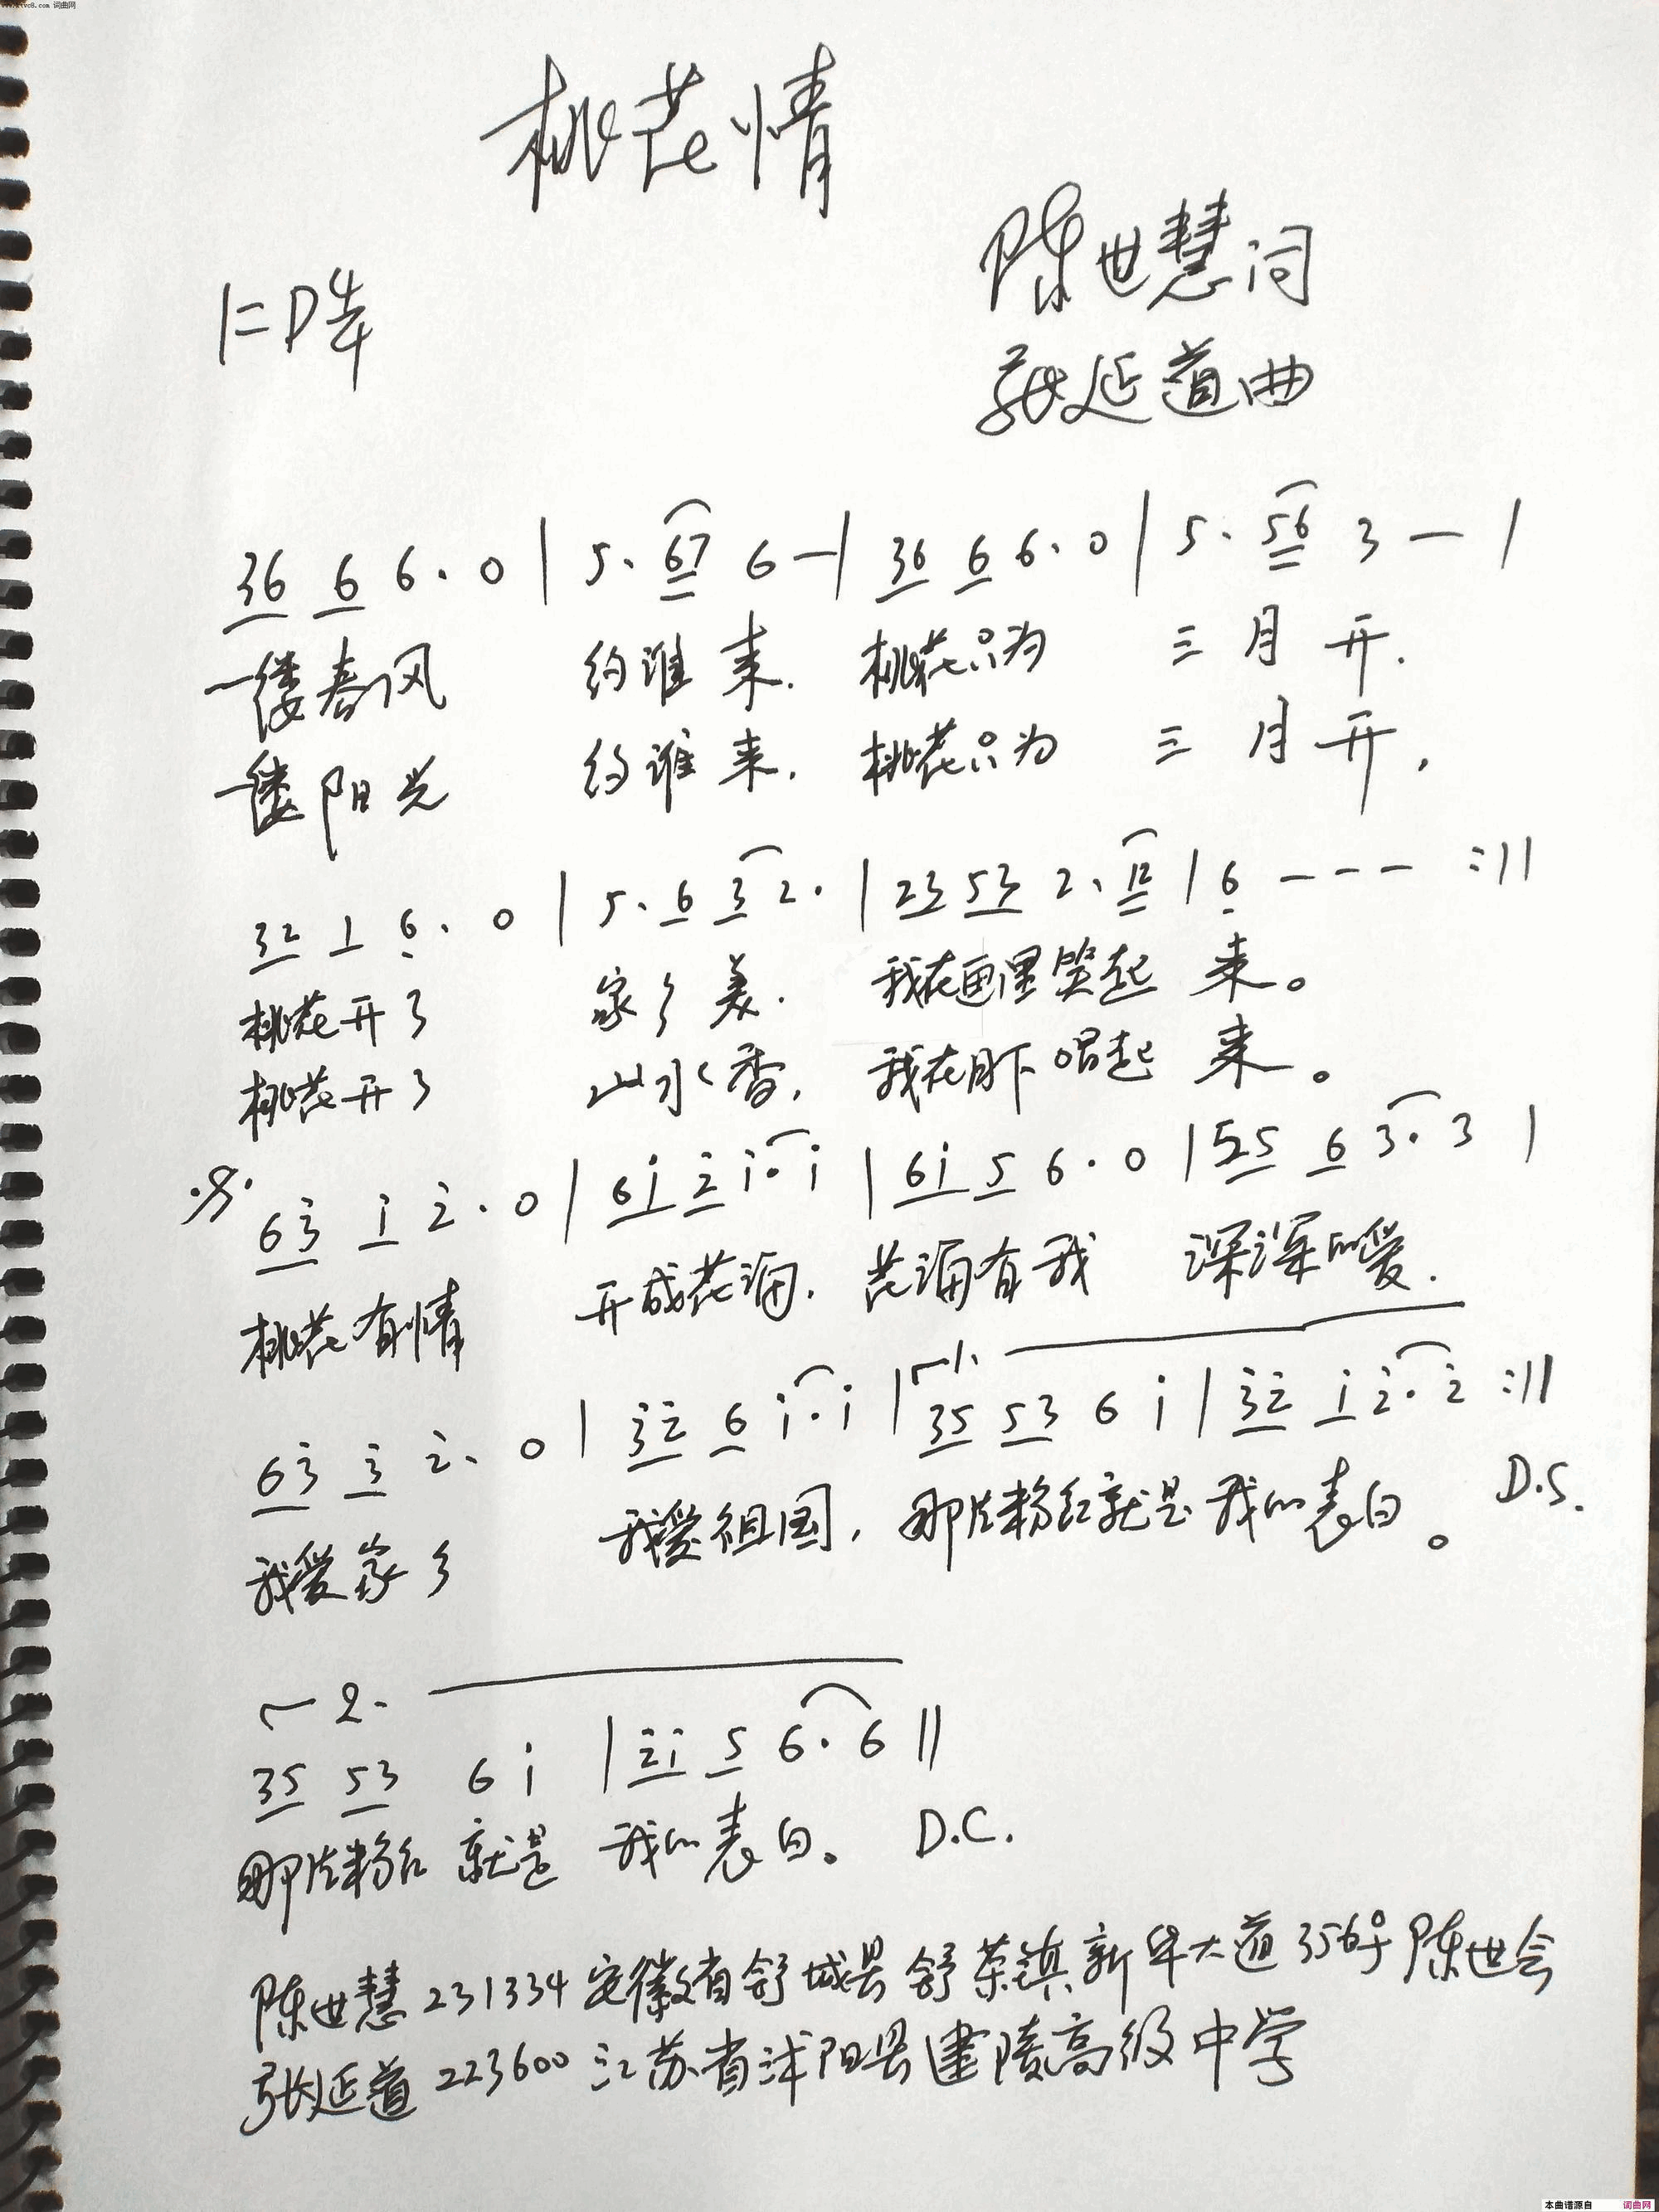 www.ktvc8.com 词曲网
桃花情
陈世慧词
1=D 4/4
张延道曲
36 6 6. 0 | 5. 67 6 — | 36 6 6. 0 | 5. 56 3 — |
一缕春风 约谁来. 桃花只为 三月开.
一缕阳光 约谁来, 桃花只为 三月开,
32 1 6. 0 | 5. 6 3 2. | 23 53 2. 12 | 6 - - - :||
桃花开了 家乡美. 我在画里笑起来。
桃花开了 山水香, 我在月下唱起来。
63 i 2. 0 | 6i 2 i. i | 6i 5 6. 0 | 55 6 3. 3 |
桃花有情 开成花海, 花海有我 深深的爱.
1.
63 3 2. 0 | 32 6 i. i | 35 53 6 i | 32 i 2. 2 :||
我爱家乡 我爱祖国, 那片粉红就是我的表白。 D.S.
2.
35 53 6 i | 2i 5 6. 6 ||
那片粉红 就是 我的表白。 D.C.
陈世慧 231334 安徽省舒城县舒茶镇新华大道356号 陈世会
张延道 223600 江苏省沭阳县建陵高级中学
本曲谱源自 词曲网